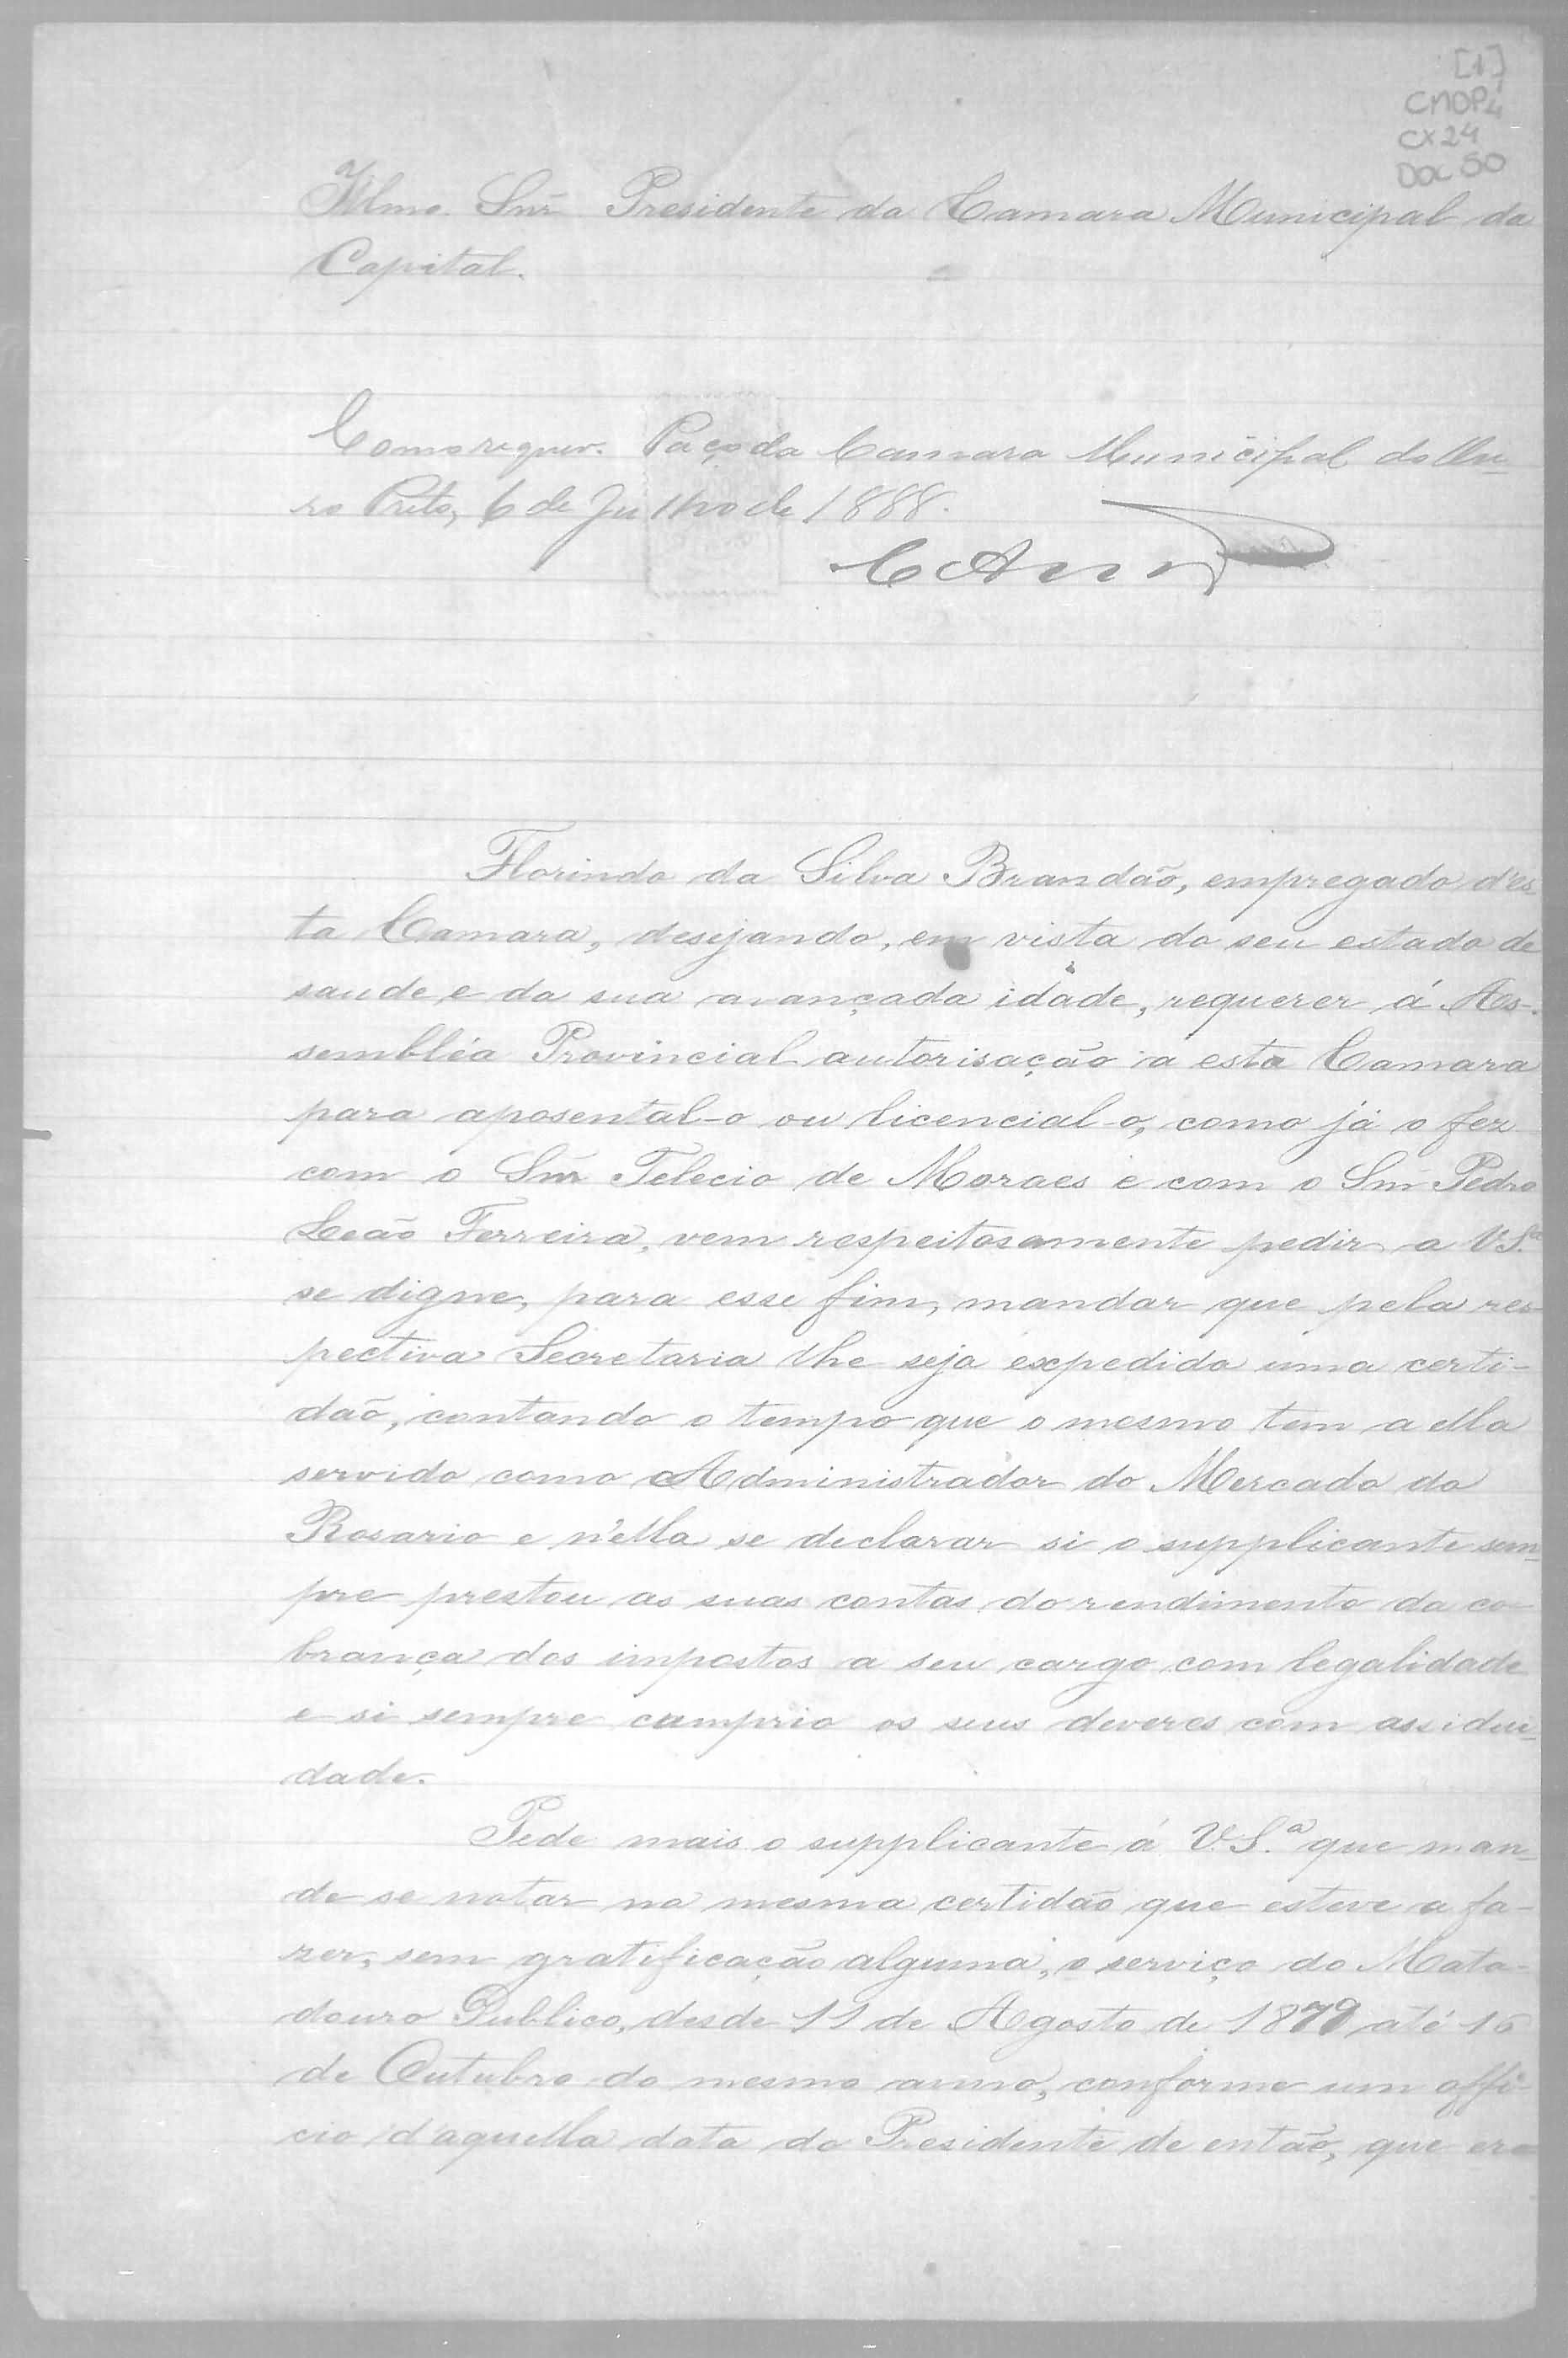 [1]
CMOP4
CX 24
Doc 50
Illmo. Snr. Presidente da Camara Municipal da
Capital.
Como requer. Paço da Camara Municipal do Ou-
ro Preto, 6 de Julho de 1888.
Florindo da Silva Brandão, empregado d'es
ta Camara, desejando, em vista do seu estado de
saude e da sua avançada idade, requerer á As-
sembléa Provincial autorisação a esta Camara
para aposental-o ou licencial-o, como já o fez
com o Snr. Telecio de Moraes e com o Snr. Pedro
Leão Ferreira, vem respeitosamente pedir a V.S.ª
se digne, para esse fim, mandar que pela res-
pectiva Secretaria lhe seja expedida uma certi-
dão, contando o tempo que o mesmo tem a ella
servido como Administrador do Mercado do
Rosario e n'ella se declarar si o supplicante sem-
pre prestou as suas contas do rendimento da co-
brança dos impostos a seu cargo com legalidade
e si sempre cumprio os seus deveres com assidui-
dade.
Pede mais o supplicante á V.S.ª que man-
de se notar na mesma certidão que esteve a fa-
zer, sem gratificação alguma, o serviço do Mata-
douro Publico, desde 11 de Agosto de 1879 até 16
de Outubro do mesmo anno, conforme um offi-
cio d'aquella data do Presidente de então, que era